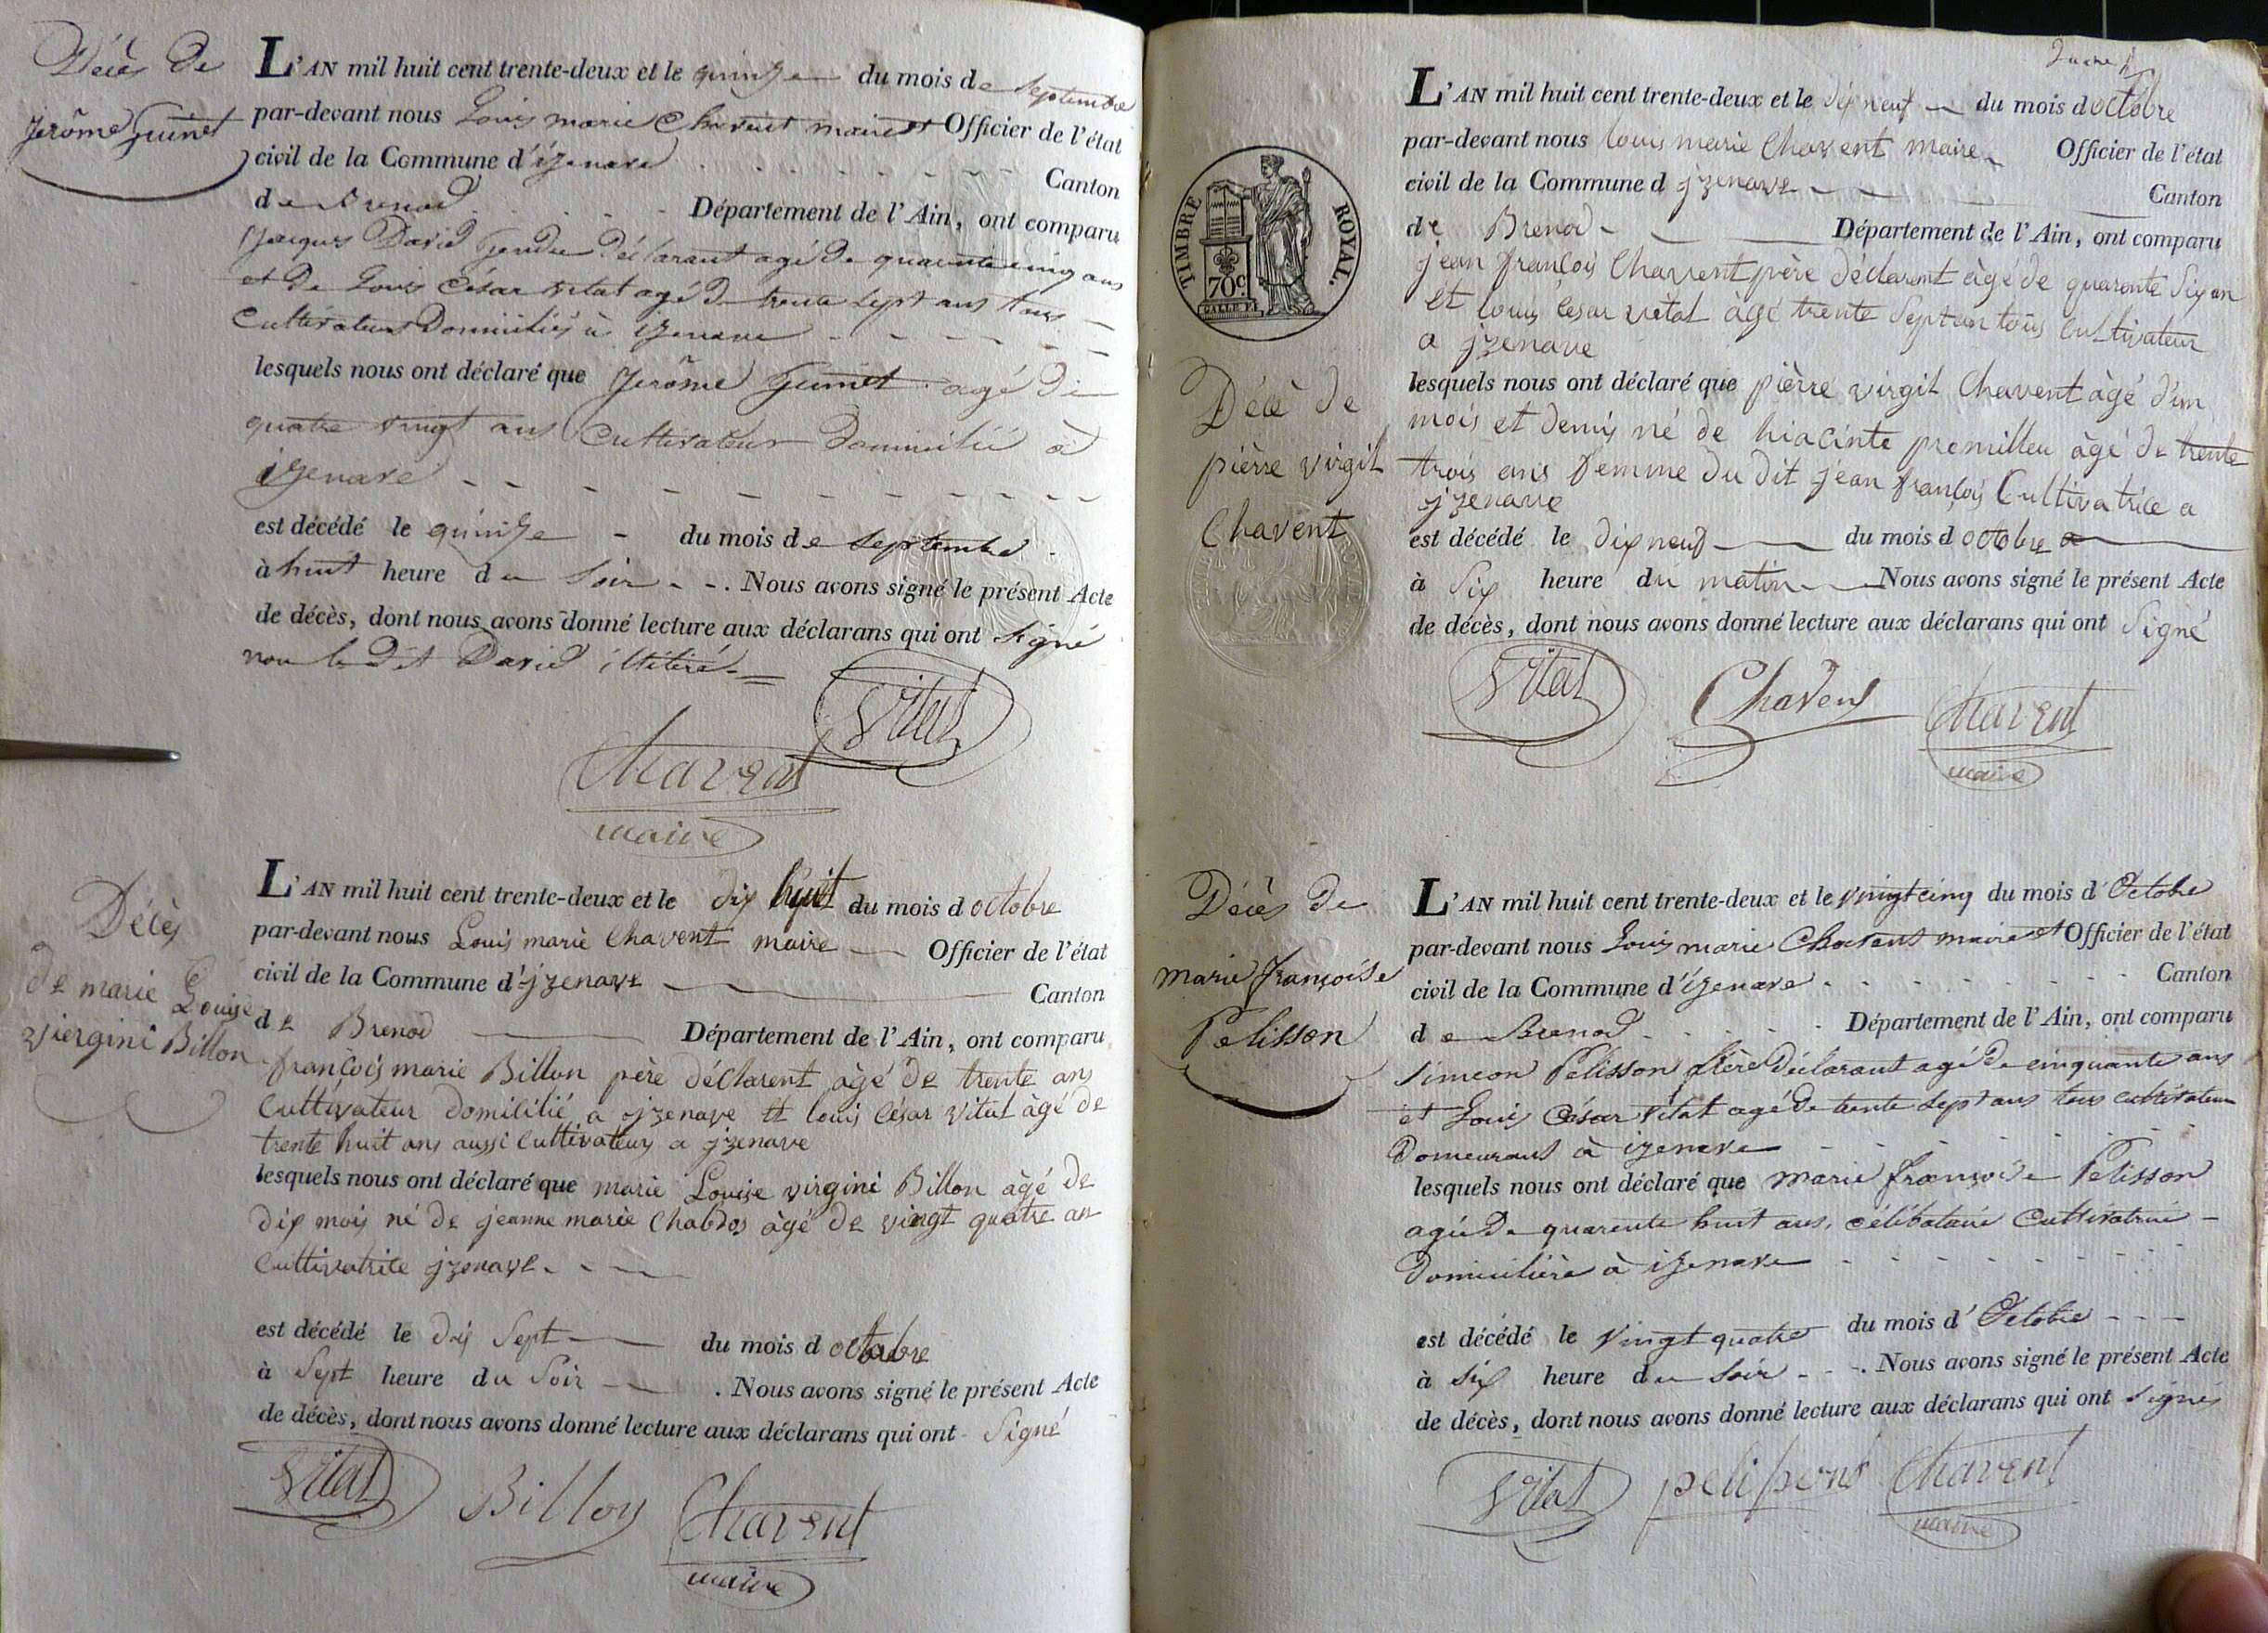 Décès de
Jerôme Guinet
L'AN mil huit cent trente-deux et le quinze du mois de septembre
par-devant nous Louis marie Chavent maire et Officier de l'état
civil de la Commune d'izenave Canton
de Brenod Département de l'Ain, ont comparu
Jacques David gendre déclarant agé de quarente cinq ans
et de Louis César vitat agé de trente sept ans tous
Cultivateurs Domiciliés à izenave
lesquels nous ont déclaré que Jerôme Guinet agé de
quatre vingt ans Cultivateur Domicilié à
izenave
est décédé le quinze du mois de septembre
à huit heure du soir. Nous avons signé le présent Acte
de décès, dont nous avons donné lecture aux déclarans qui ont signé
non le dit David illitéré
Vitat
Chavent
maire
Décès
de marie Louise
viergini Billon
L'AN mil huit cent trente-deux et le dix huit du mois d octobre
par-devant nous Louis marie Chavent maire Officier de l'état
civil de la Commune d'jzenave Canton
de Brenod Département de l'Ain, ont comparu
françois marie Billon père déclarent àgé de trente ans
Cultivateur domicilié a jzenave et louis César vitat àgé de
trente huit ans aussi Cultivateur a jzenave
lesquels nous ont déclaré que marie Louise virgini Billon àgé de
dix mois né de jeanne marie Chabdos àgé de vingt quatre an
Cultivatrice jzenave
est décédé le dix sept du mois d octobre
à Sept heure du Soir. Nous avons signé le présent Acte
de décès, dont nous avons donné lecture aux déclarans qui ont Signé
Vitat Billon Chavent
maire
TIMBRE ROYAL.
70c.
Décè de
pièrre virgil
Chavent
L'AN mil huit cent trente-deux et le dix neuf du mois d octobre
par-devant nous louis marie Chavent maire Officier de l'état
civil de la Commune d jzenave Canton
de Brenod Département de l'Ain, ont comparu
jean françois Chavent père déclarent àgé de quarente Six an
et louis César vitat àgé trente Sept an tous Cultivateur
a jzenave
lesquels nous ont déclaré que pièrre virgil Chavent àgé d'un
mois et demis né de hiacinte premilleu àgé de trente
trois ans femme du dit jean françois Cultivatrice a
jzenave
est décédé le dix neuf du mois d octobre
à Six heure du matin Nous avons signé le présent Acte
de décès, dont nous avons donné lecture aux déclarans qui ont Signé
Vitat Chavent Chavent
maire
Décès de
marie françoise
Pelisson
L'AN mil huit cent trente-deux et le vingt cinq du mois d'Octobre
par-devant nous Louis marie Chavent maire et Officier de l'état
civil de la Commune d'izenave Canton
de Brenod Département de l'Ain, ont comparu
Simeon Pelisson frère déclarant agé de cinquante ans
et Louis César Vitat agé de trente sept ans tous cultivateur
Demeurant à izenave
lesquels nous ont déclaré que Marie françoise Pelisson
agée de quarente huit ans, célibataire Cultivatrice
Domicilière à izenave
est décédé le vingt quatre du mois d'Octobre
à six heure du soir. Nous avons signé le présent Acte
de décès, dont nous avons donné lecture aux déclarans qui ont signés
Vitat pelisson Chavent
maire